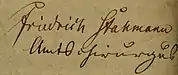 Friedrich Stukmann
Amtschirurgus